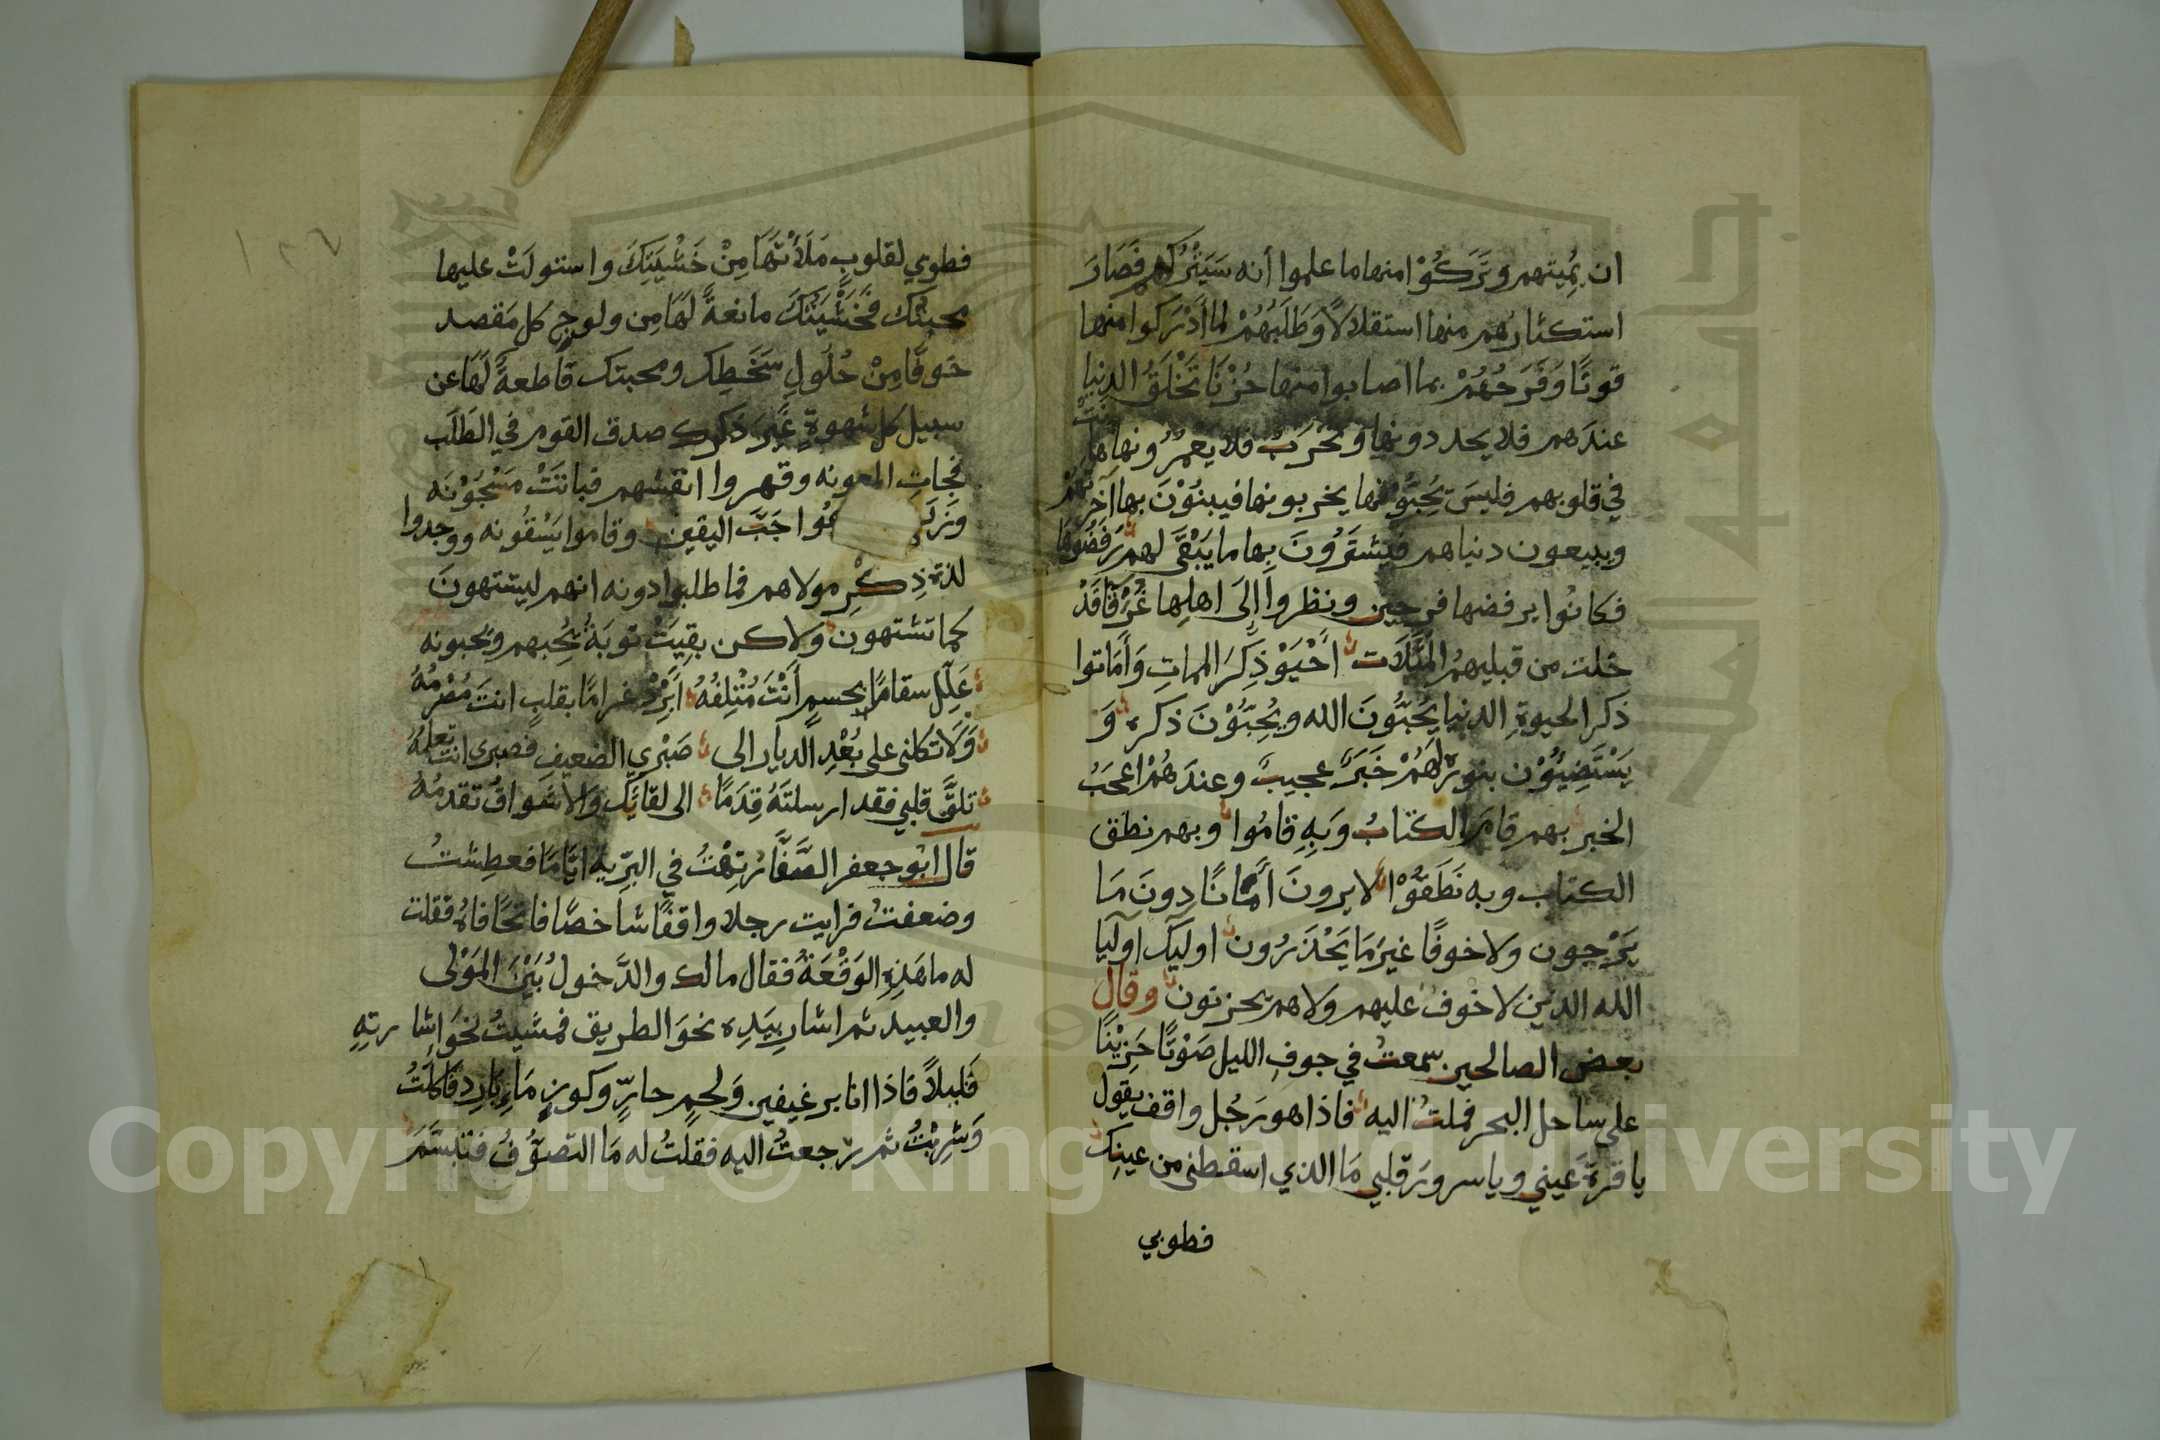 ان يُميتهم وتَرَكُوْا منها ما علموا أنه سَيَتْرُكُهم فَصَارَ
استكثارُهم منها استقلالاً وَطَلَبُهُمْ لما أَدْرَكوا منها
فوتًا وَفَرَحُهُمْ بما اصابوا منها حُزْنًا تَخْلَقُ الدنيا
عندَهم فلا يجددونها وَتَخْرَبُ فلا يعمُرُونها ماتَتْ
في قلوبهم فليسَ يُحِبُّوْنها يخربونها فيبنُوْنَ بها آخرتَهُمْ
ويبيعون دنياهم فيشترُونَ بها ما يَبْقَى لهم رَفَضُوْهَا
فكانُوا برفضها فرحين ونظروا إلَى اهلِها غَرْقَا قَدْ
خلت من قبلِهِمُ المَثُلَات أَحْيَوْ ذِكْرَ المماتِ وَأَمَاتوا
ذكر الحيوةِ الدنيا يُحِبُّونَ الله ويُحِبُّوْنَ ذكره وَ
يَسْتَضِيْؤُن بنوره لَهُمْ خَبَرٌ عجيبٌ وعندَهُمْ اعجَبُ
الخبر بهم قامَ الكتابُ وَبِهِ قامُوا وبهم نطق
الكتاب وبه نَطَقُوْا لا يرونَ أَمَانًا دونَ مَا
يَرْجون ولا خوفًا غيرَ مَا يَحْذَرُون اوليك اوليا
الله الدين لا خوفٌ عليهم ولا هم يحزنون وقال
بعض الصالحين سمعتُ في جوفِ الليل صَوْتًا حَزِيْنًا
على ساحل البحر فملتُ اليه فاذا هو رَجُل واقف يقول
يا قرةَ عَيني ويا سرورَ قلبي مَا الذي اسقطني من عينِك
فطوبي
١٢٦
فطوبي لقلوبٍ مَلَأْتَهَا مِنْ خَشْيَتِكَ واستولَتْ عليها
محبتُك فَخَشْيَتُكَ مانعةٌ لَهَا مِن ولوجِ كل مَقصد
خوفًا مِنْ حُلُولِ سَخَطِك ومحبتك قاطعةٌ لَهَا عن
سبيل كل شهوةٍ غَيْرَ ذكرِك صدق القوم في الطَلَب
فجات المعونه وقهروا انفسهم فباتَتْ مَسْجُوْنَه
وَزَرَ عُوا حَبَّ اليقين وقاموا يَسْقُونه ووجدوا
لذةَ ذِكْرِ مولاهم فما طلبوا دونه انهم ليشتهونَ
كما تشتهون ولاكن بقِيَتْ توبَةُ يُحِبهم ويحبونه
عَلِّل سقامًا بجسمٍ أَنْتَ مُتْلِفُهُ أَبْرِدْ غرامًا بقلبٍ انتَ مُضرِمُهُ
وَلَا تكلني على بُعْدِ الديار الى صَبْرِي الضعيفِ فصبري انتَ تعلمُهُ
تلقَّ قلبي فقد ارسلتَهُ قِدَمًا الى لقائِك والاشواقُ تقدمُهُ
قال ابُو جعفر الصَّفَّارُ تِهْتُ في البرِّيه ايَّامَا فعطِشتُ
وضعفتُ فرايت رجلا واقفًا شاخصًا فاتحًا فاهُ فقلت
له ما هَذِهِ الوَقْفَةُ فقال مالك والدَّخولُ بَيْنَ المَوْلى
والعبيد ثم اشار بِيَدِه نحوَ الطريق فمشيتُ نحوَ اشارتِهِ
قليلاً فاذا انا برغيفين وَلحمٍ حارٍّ وكوزٍ مَاءٍ بَارِدٍ فَاكلتُ
وَشربْتُ ثم رجعتُ اليه فقلتُ له مَا التصوُّفُ فتبسَّمَ
Copyright © King Saud University